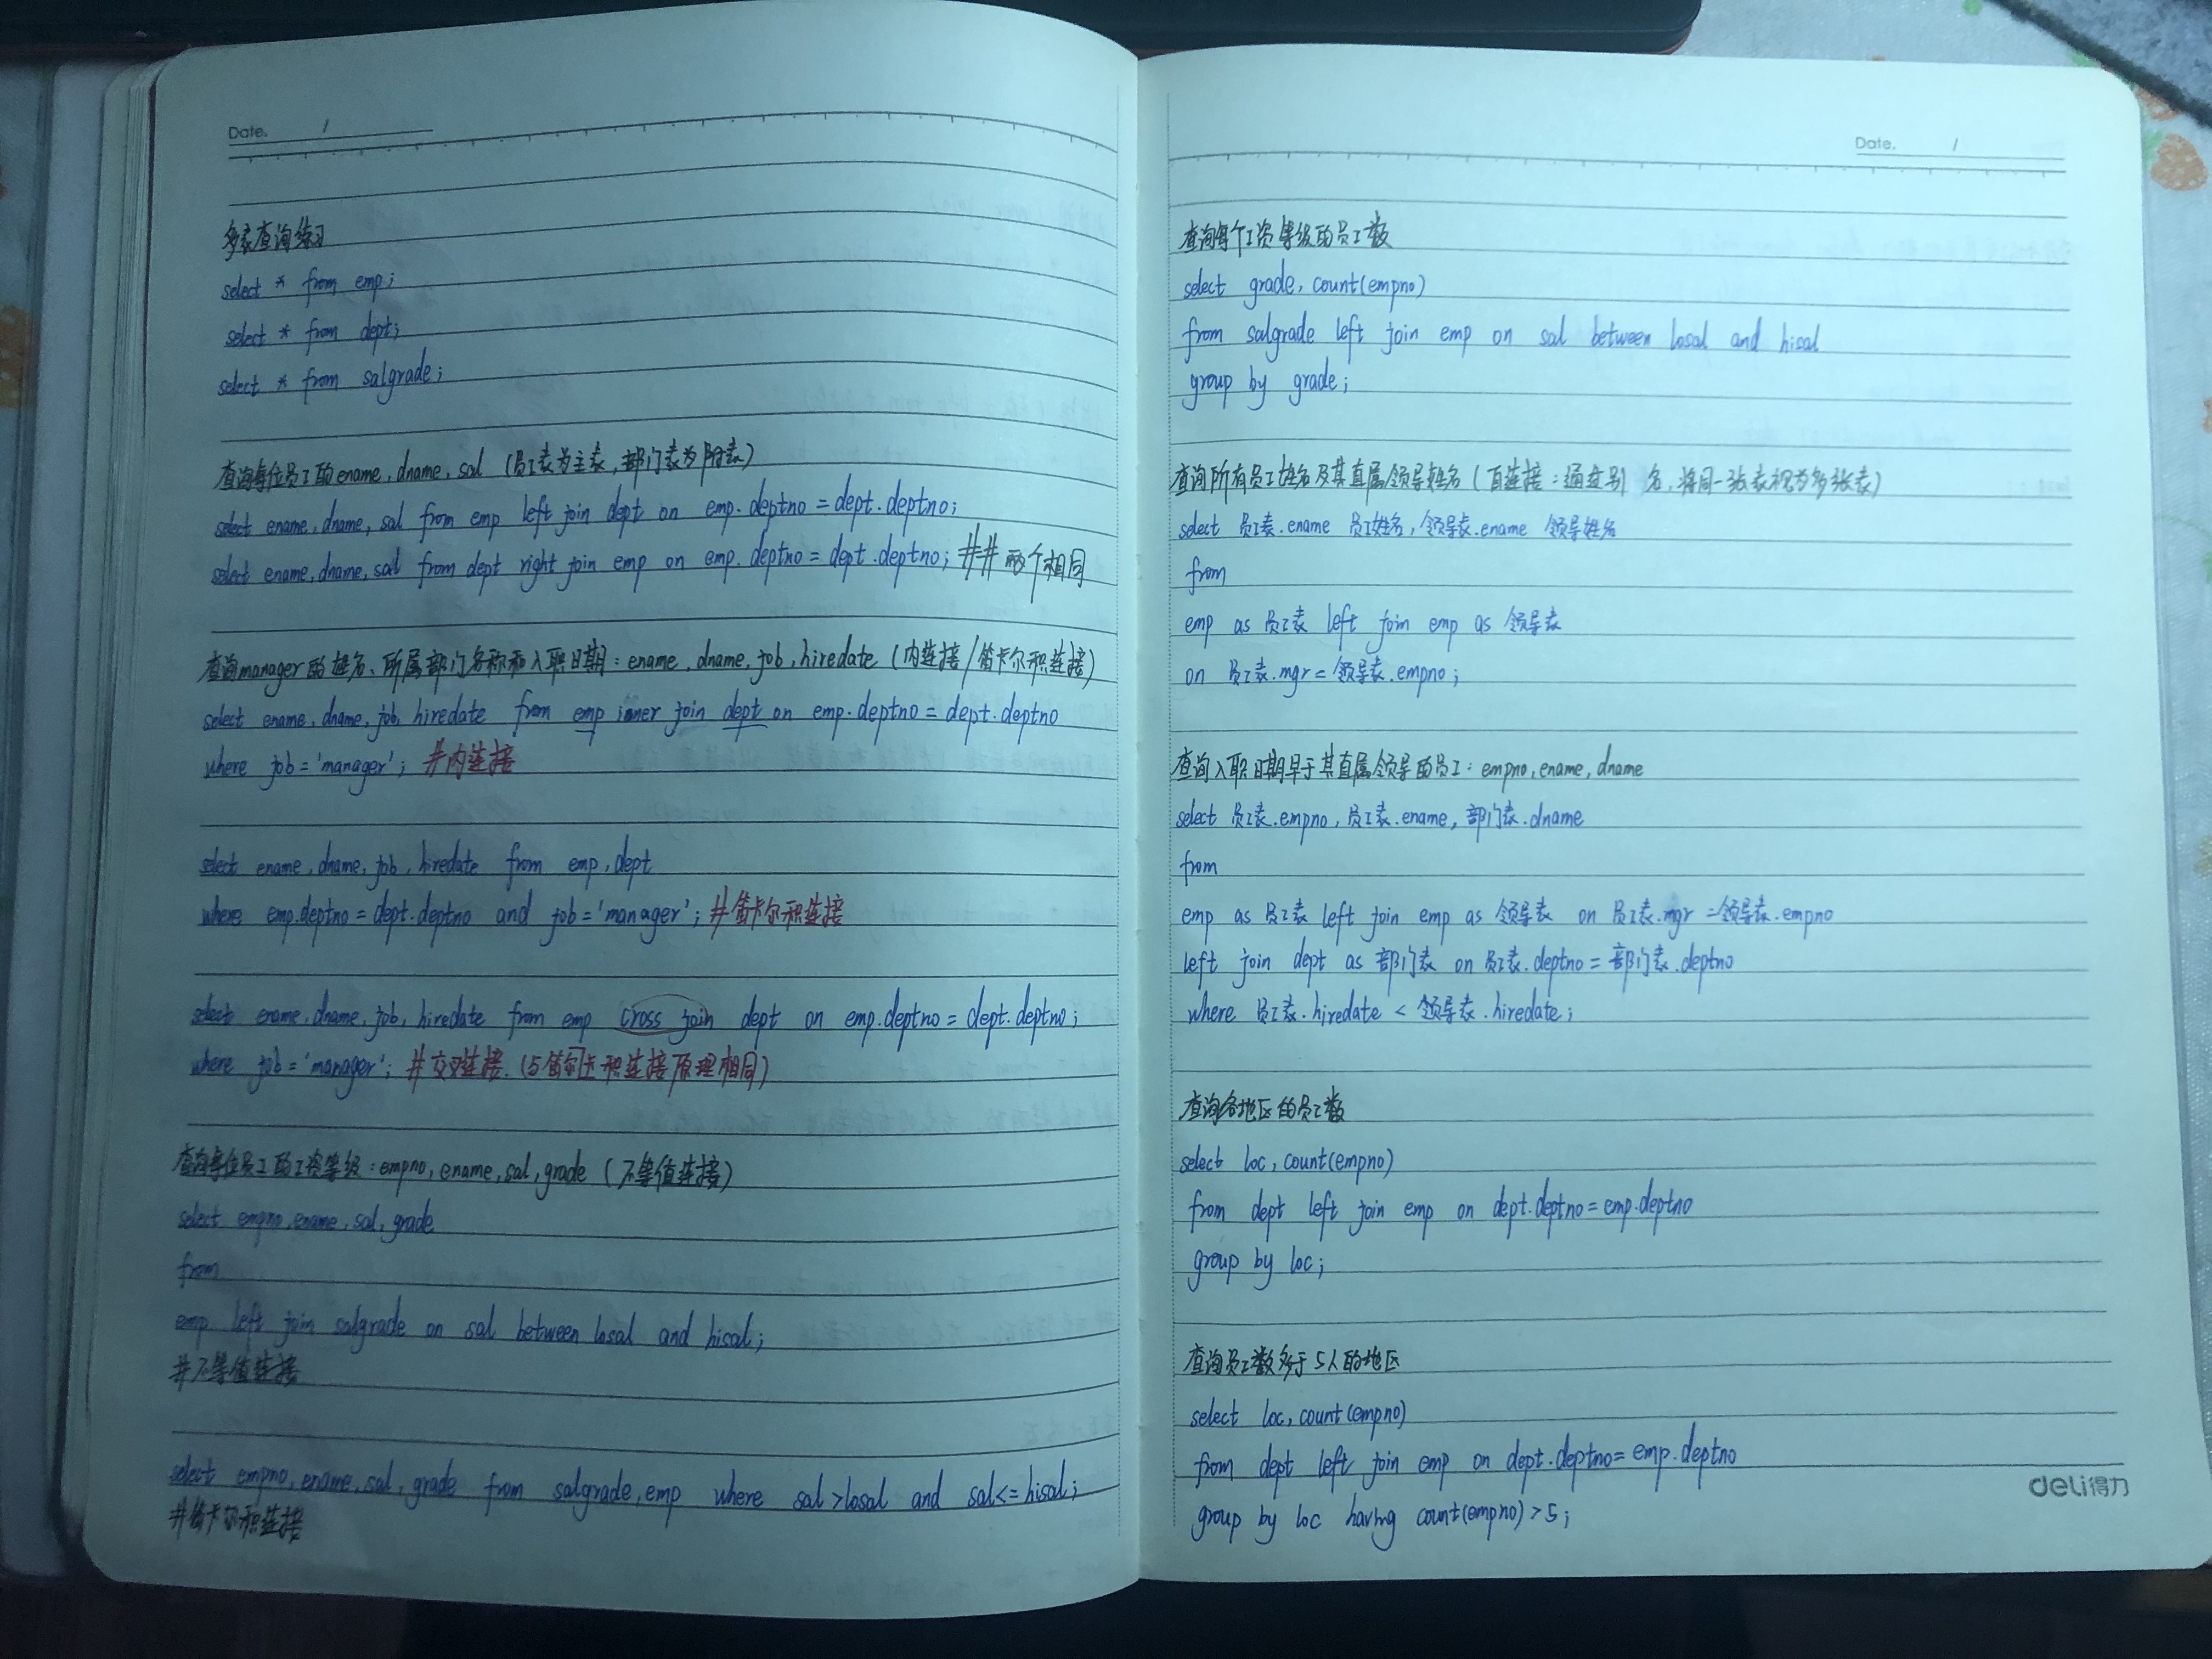 Date. /
多表查询练习
select * from emp;
select * from dept;
select * from salgrade;
查询每位员工的ename, dname, sal (员工表为主表, 部门表为附表)
select ename, dname, sal from emp left join dept on emp.deptno = dept.deptno;
select ename, dname, sal from dept right join emp on emp.deptno = dept.deptno; ## 两个相同
查询manager的姓名、所属部门名称和入职日期: ename, dname, job, hiredate (内连接/笛卡尔积连接)
select ename, dname, job, hiredate from emp inner join dept on emp.deptno = dept.deptno
where job = 'manager'; #内连接
select ename, dname, job, hiredate from emp, dept
where emp.deptno = dept.deptno and job = 'manager'; #笛卡尔积连接
select ename, dname, job, hiredate from emp cross join dept on emp.deptno = dept.deptno;
where job = 'manager'; #交叉连接. (与笛尔卡积连接原理相同)
查询每位员工的工资等级: empno, ename, sal, grade (不等值连接)
select empno, ename, sal, grade
from
emp left join salgrade on sal between losal and hisal;
#不等值连接
select empno, ename, sal, grade from salgrade, emp where sal > losal and sal <= hisal;
#笛卡尔积连接
Date. /
查询每个工资等级的员工数
select grade, count(empno)
from salgrade left join emp on sal between losal and hisal
group by grade;
查询所有员工姓名及其直属领导姓名 (自连接: 通过别 名, 将同一张表视为多张表)
select 员工表.ename 员工姓名, 领导表.ename 领导姓名
from
emp as 员工表 left join emp as 领导表
on 员工表.mgr = 领导表.empno;
查询入职日期早于其直属领导的员工: empno, ename, dname
select 员工表.empno, 员工表.ename, 部门表.dname
from
emp as 员工表 left join emp as 领导表 on 员工表.mgr = 领导表.empno
left join dept as 部门表 on 员工表.deptno = 部门表.deptno
where 员工表.hiredate < 领导表.hiredate;
查询各地区的员工数
select loc, count(empno)
from dept left join emp on dept.deptno = emp.deptno
group by loc;
查询员工数多于5人的地区
select loc, count(empno)
from dept left join emp on dept.deptno = emp.deptno
group by loc having count(empno) > 5;
deli得力